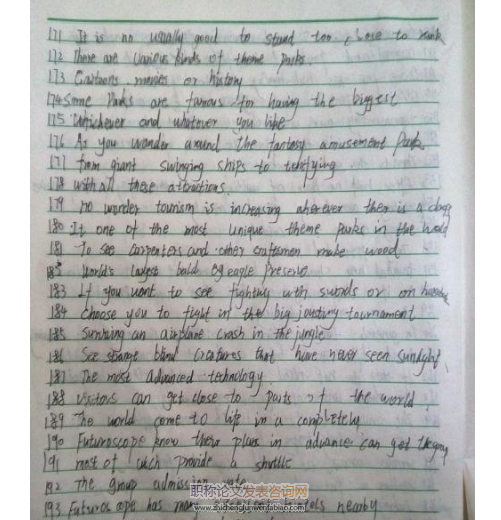 171 It is no usually good to stand too close to rank
172 There are various kinds of theme parks
173 Cartoons movies or history
174 Some Parks are famous for having the biggest
175 Whichever and whatever you like
176 As you wander around the fantasy amusement Parks
177 from giant swinging ships to terrifying
178 with all these attractions.
179 no wonder tourism is increasing wherever ther is a
180 It one of the most unique theme parks in the world
181 To see carpenters and other craftsmen make wood
World's largest bald eagle Preserve
183 If you want to see fighting with swords or on
184 choose you to fight in the big jousting tournament
185 Surviving an airplane crash in the jungle
186 See strange blind creatures that have never seen sunlight
187 The most advanced technology
188 visitors can get close to parts of the world
189 The world come to life in a completely
190 Futuroscope know there plans in advance can get
191 most of which provide a shuttle
192 The group admission rate
193 Futuroscope has many hotels nearby
职称论文发表咨询网
www.zhichenglunwenfabiao.com